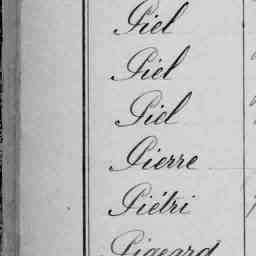 Piel
Piel
Piel
Pierre
Piétri
Pigeard